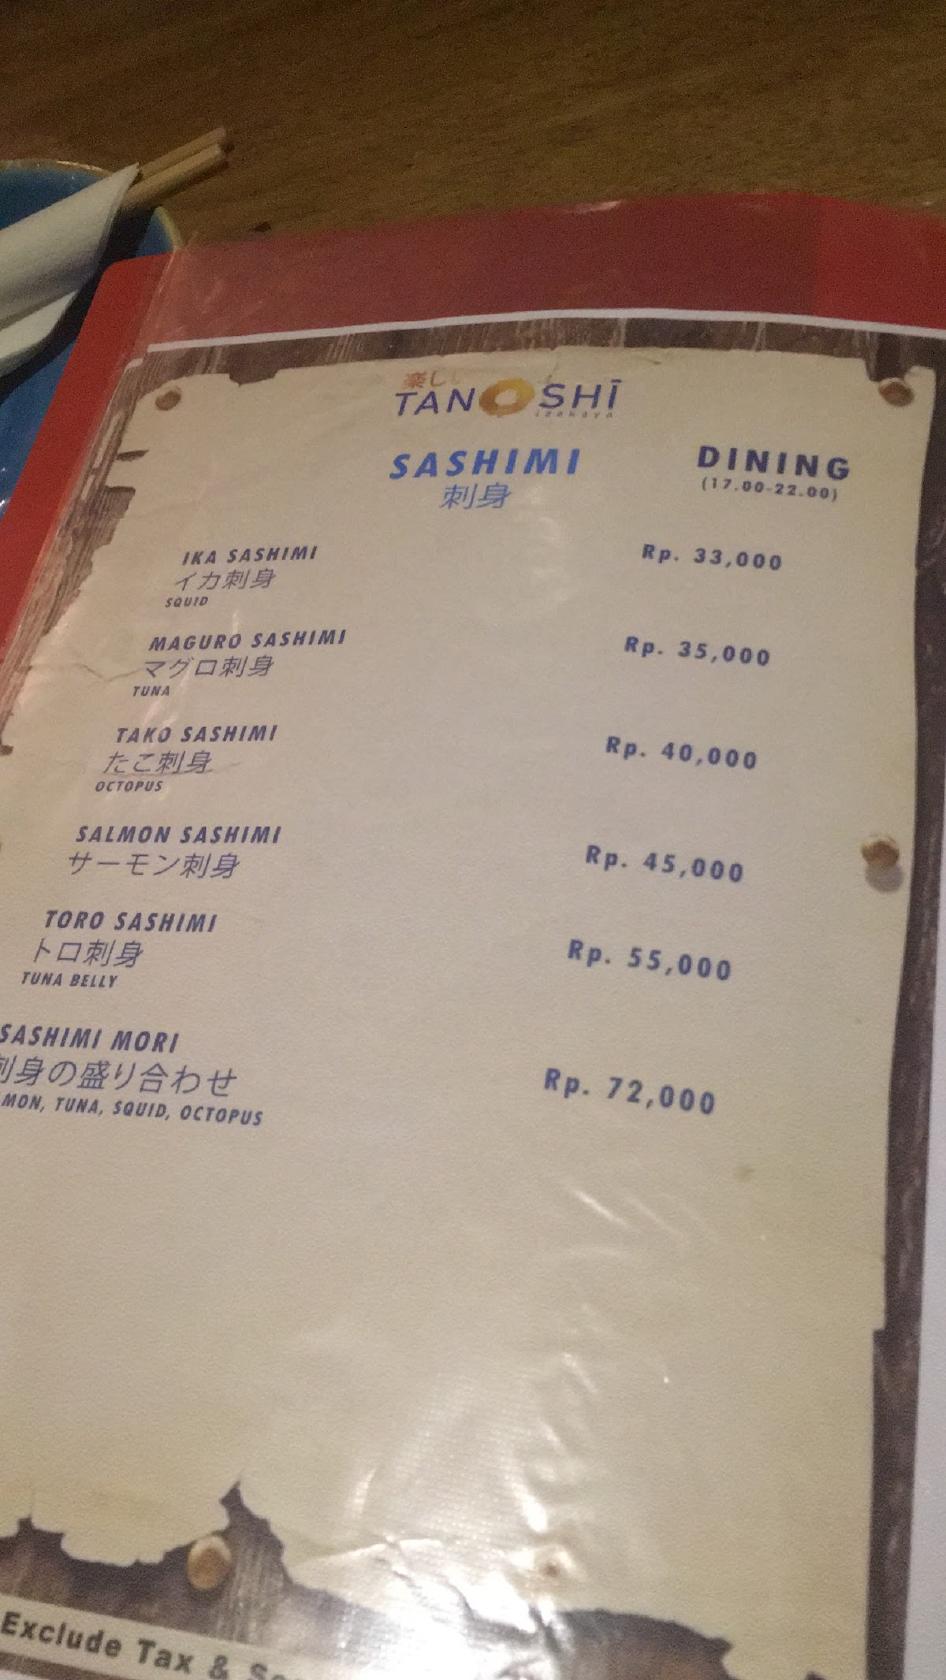 楽し
TANOSHĪ
izakaya
SASHIMI
刺身
DINING
(17.00-22.00)
IKA SASHIMI
イカ刺身
SQUID
Rp. 33,000
MAGURO SASHIMI
マグロ刺身
TUNA
Rp. 35,000
TAKO SASHIMI
たこ刺身
OCTOPUS
Rp. 40,000
SALMON SASHIMI
サーモン刺身
Rp. 45,000
TORO SASHIMI
トロ刺身
TUNA BELLY
Rp. 55,000
SASHIMI MORI
刺身の盛り合わせ
MON, TUNA, SQUID, OCTOPUS
Rp. 72,000
Exclude Tax &